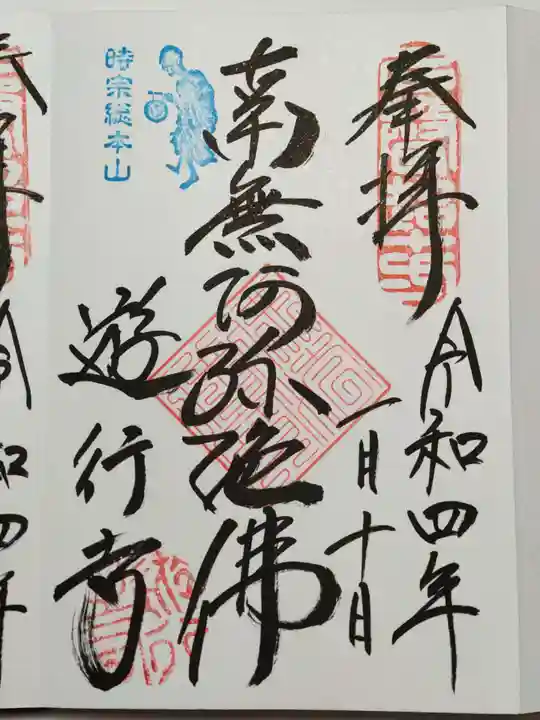 奉拝
令和四年
一月十日
南無阿弥陀佛
時宗総本山
遊行寺